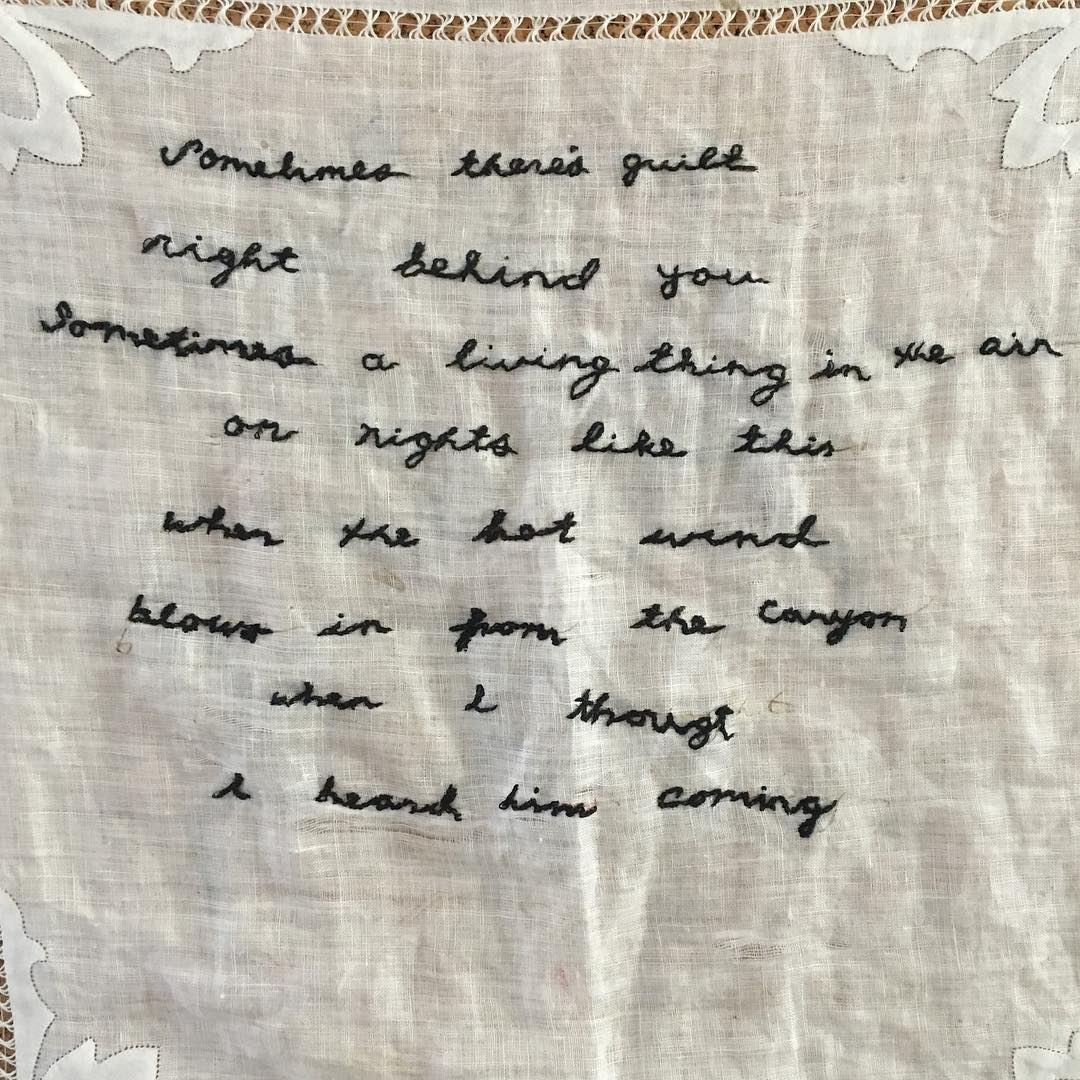 Sometimes there's guilt
right behind you
Sometimes a living thing in the air
on nights like this
when the hot wind
blows in from the canyon
when I thougt
I heard him coming